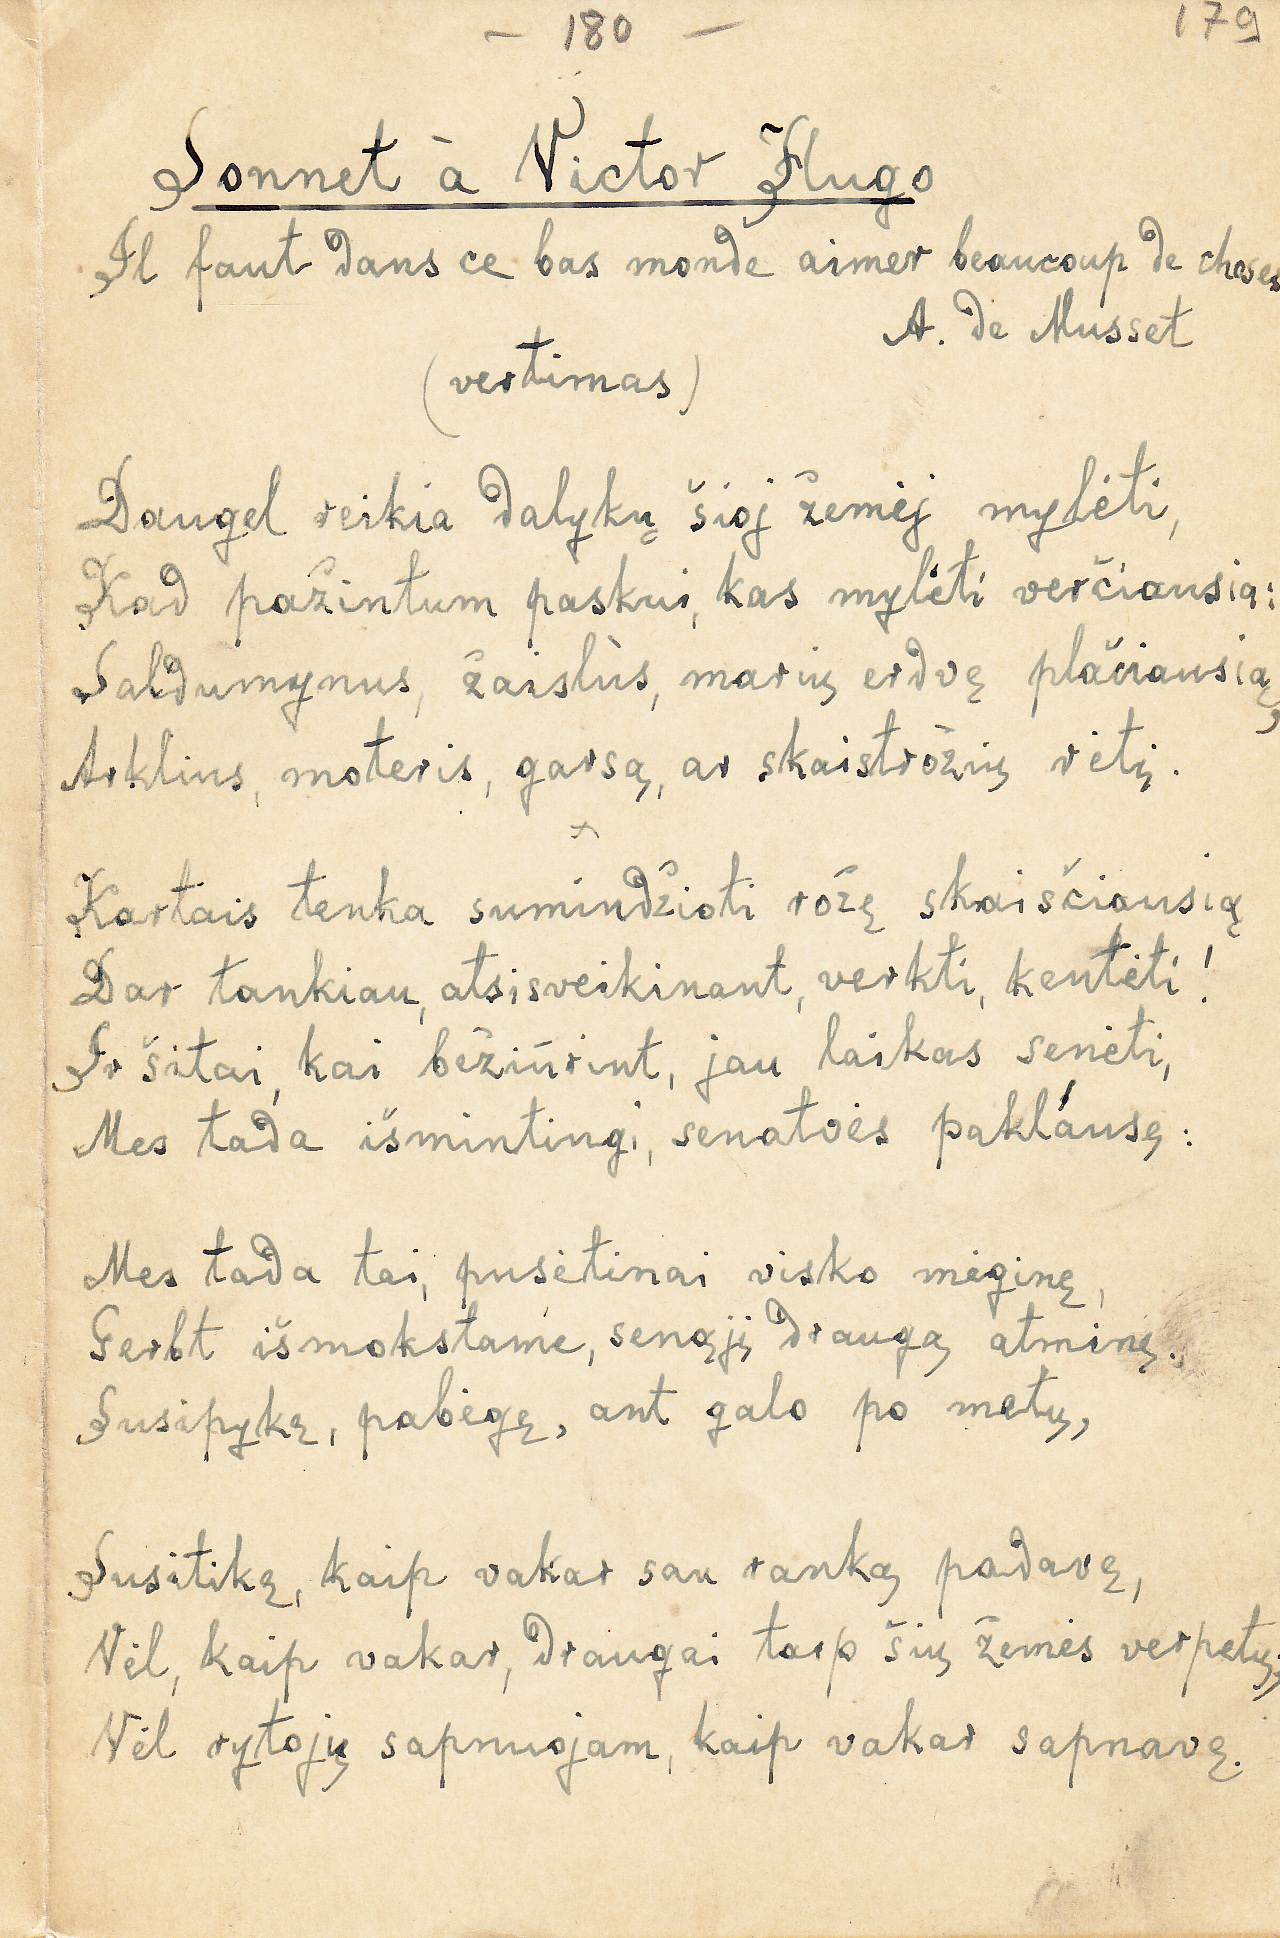 – 180 –
179
Sonnet à Victor Hugo
Il faut dans ce bas monde aimer beaucoup de choses
A. de Musset
(vertimas)
Daugel reikia dalykų šioj žemėj mylėti,
Kad pažintum paskui, kas mylėti verčiausia:
Saldumynus, žaislùs, marių erdvę plačiausią,
Arklius, moteris, garsą, ar skaistrožių rėtį.
Kartais tenka sumindžioti rožę skaiščiausią
Dar tankiau, atsisveikinant, verkti, kentėti!
Ir šitai, kai bežiūrint, jau laikas senėti,
Mes tada išmintingi, senatvės pakláusę:
Mes tada tai, pusėtinai visko mėginę,
Gerbt išmokstame, senąjį draugą atminę.
Susipykę, pabėgę, ant galo po metų,
Susitikę, kaip vakar sau ranką padavę,
Vėl, kaip vakar, draugai tarp šių žemės verpetų;
Vėl rytojų sapnuojam, kaip vakar sapnavę.